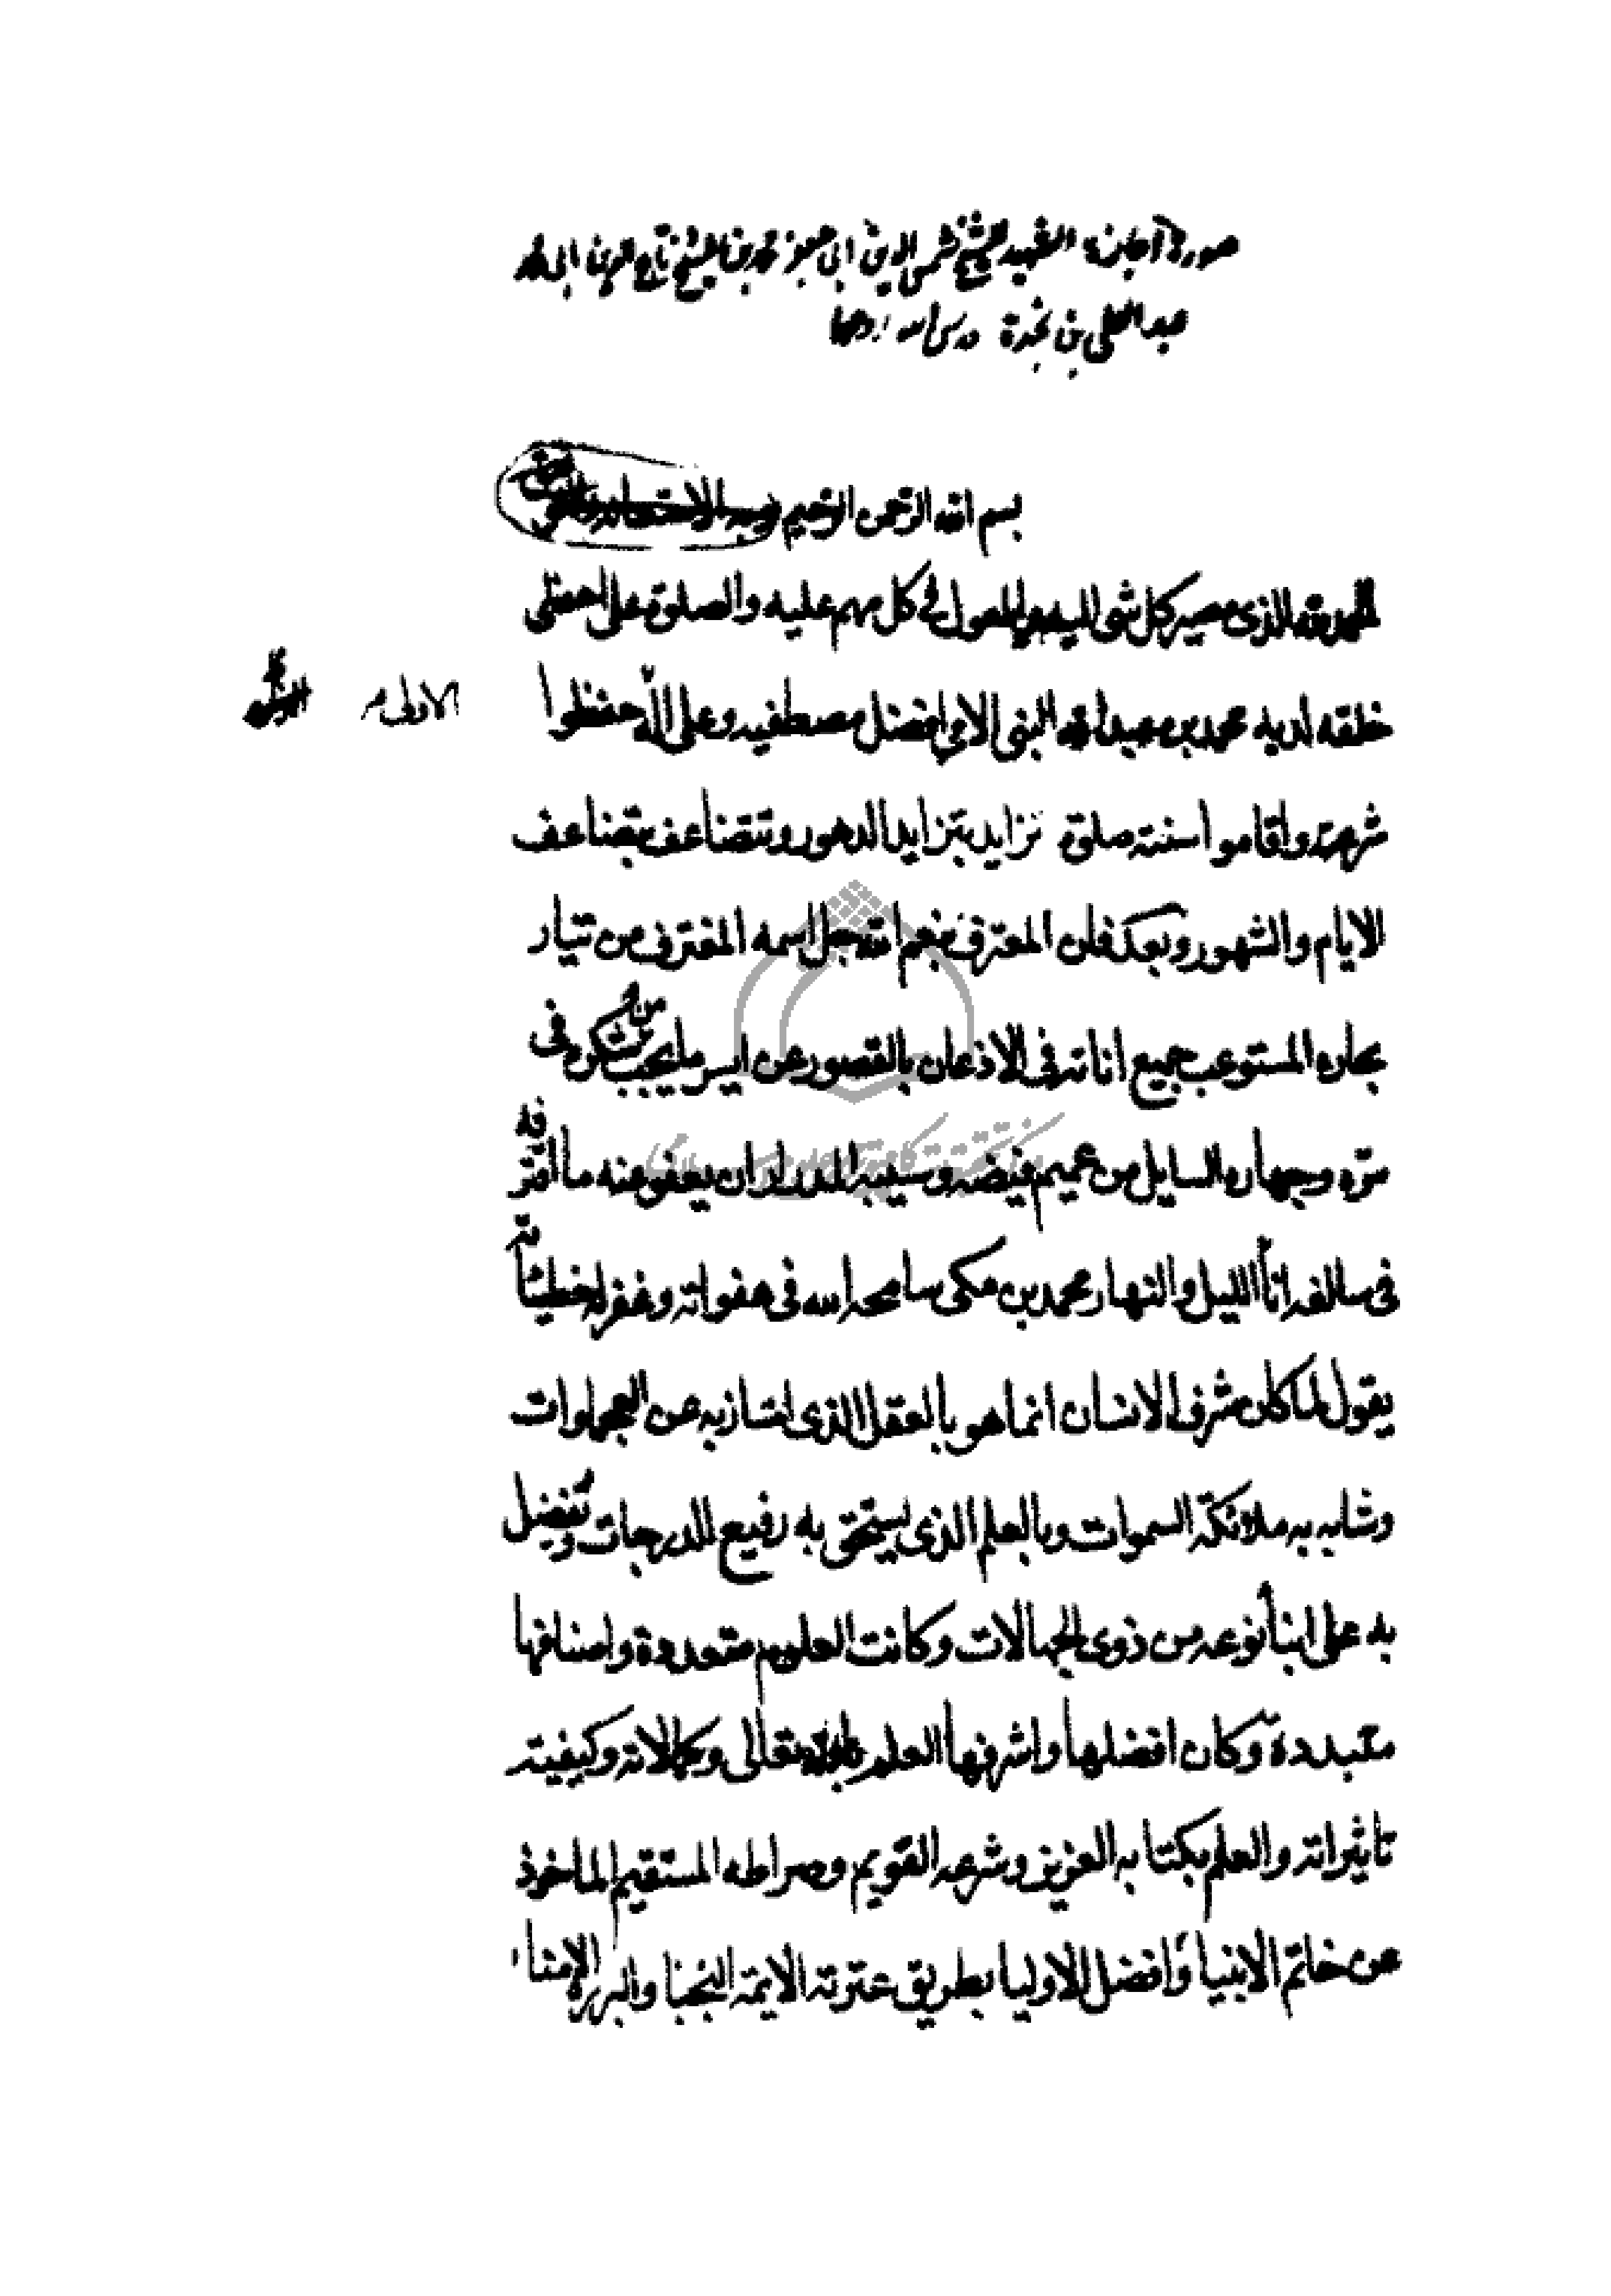 صورة اجازة الشهيد للشيخ شمس الدين ابى جعفر محمد بن الشيخ تاج الدين ابى محمد
عبد العلى بن نجدة قدس الله روحهما
بسم الله الرحمن الرحيم
الحمد لله الذى مصير كل شى اليه والمعول فى كل مهم عليه والصلوة على احظى
خلقه لديه محمد بن عبد الله النبى الامى افضل مصطفيه وعلى آله حفظوا
شرعته واقاموا سنته صلوة تزايد بتزايد الدهور وتتضاعف بتضاعف
الايام والشهور وبعد فان المعترف بنعم الله جل اسمه المغترف من تيار
بحاره المستوعب جميع اناته فى الاذعان بالقصور عن ايسر ما يجب من شكره فى
سره وجهاره السايل من عميم فيضه وسيبه المدرار ان يعفو عنه ما اقترفه
فى سالف انآ الليل والنهار محمد بن مكى سامحه الله فى هفواته وغفر له خطيئاته
يقول لما كان شرف الانسان انما هو بالعقل الذى امتاز به عن العجماوات
وشابه به ملائكة السموات وبالعلم الذى يستحق به رفيع الدرجات وتفضيل
به على ابنآ نوعه من ذوى الجهالات وكانت العلوم متعددة واصنافها
متبددة وكان افضلها واشرفها العلم بالله تعالى وكمالاته وكيفية
تاثيراته والعلم بكتابه العزيز وشرعه القويم وصراطه المستقيم الماخوذ
عن خاتم الانبياء وافضل الاوليا بطريق عترته الائمة النجبا والبررة الامناء